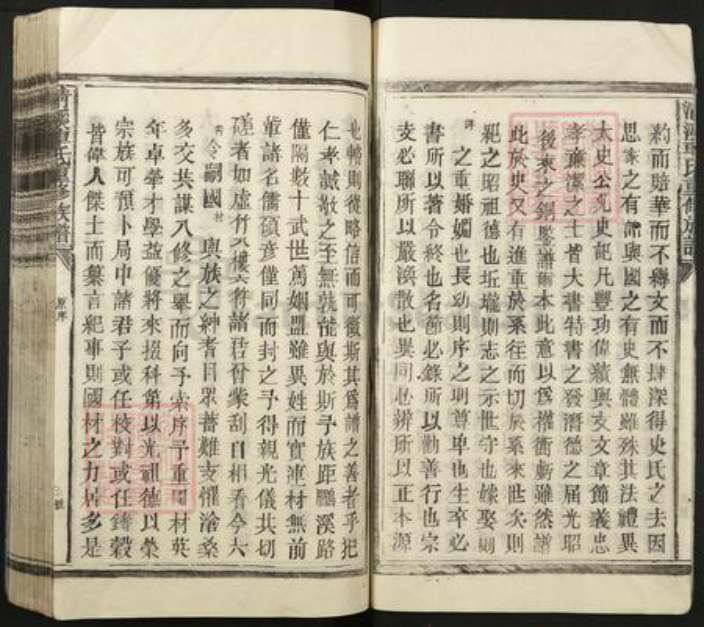 豹而賠華而不穢文而不肆深得史氏之去因
思家之有譜與國之有史無體雖殊其法禮異
太史公先史記凡豐功偉績與夫文章節義忠
孝廉潔之士皆大書特書之發潛德之屈光昭
後來之銅鑒譜爾本此意以爲權衡斬雖然譜
此於史又有進重於系往而切於系來世次則
紀之昭祖德也坵壠則志之示世守也嫁娶則
詳之重婚姻也長幼則序之明尊卑也生卒必
書所以著令終也名節必錄所以勸善行也宗
支必聯所以嚴渙散也異同必辨所以正本源
也轉則從略信而可徵斯其爲譜之善者乎
仁孝誠敬之至無孰能與於斯予族距鵬溪路
僅隔數十武世萬姻盟雖異姓而實連村無前
輩諸名儒碩彥僅同而封之予得親光儀共切
磋者如虛竹八樓六符諸君晉蒙刮自相看今六
令嗣國材與族之紳耆目眾蕃難支懼滄桑
多交共謀入修之舉而向予索序予重國材英
年卓犖才學益優將來掇科第以光祖德以榮
宗族可預卜局中諸君子或任校對或任鋳穀
皆偉人傑士而纂言紀事則國材之力居多是
原序